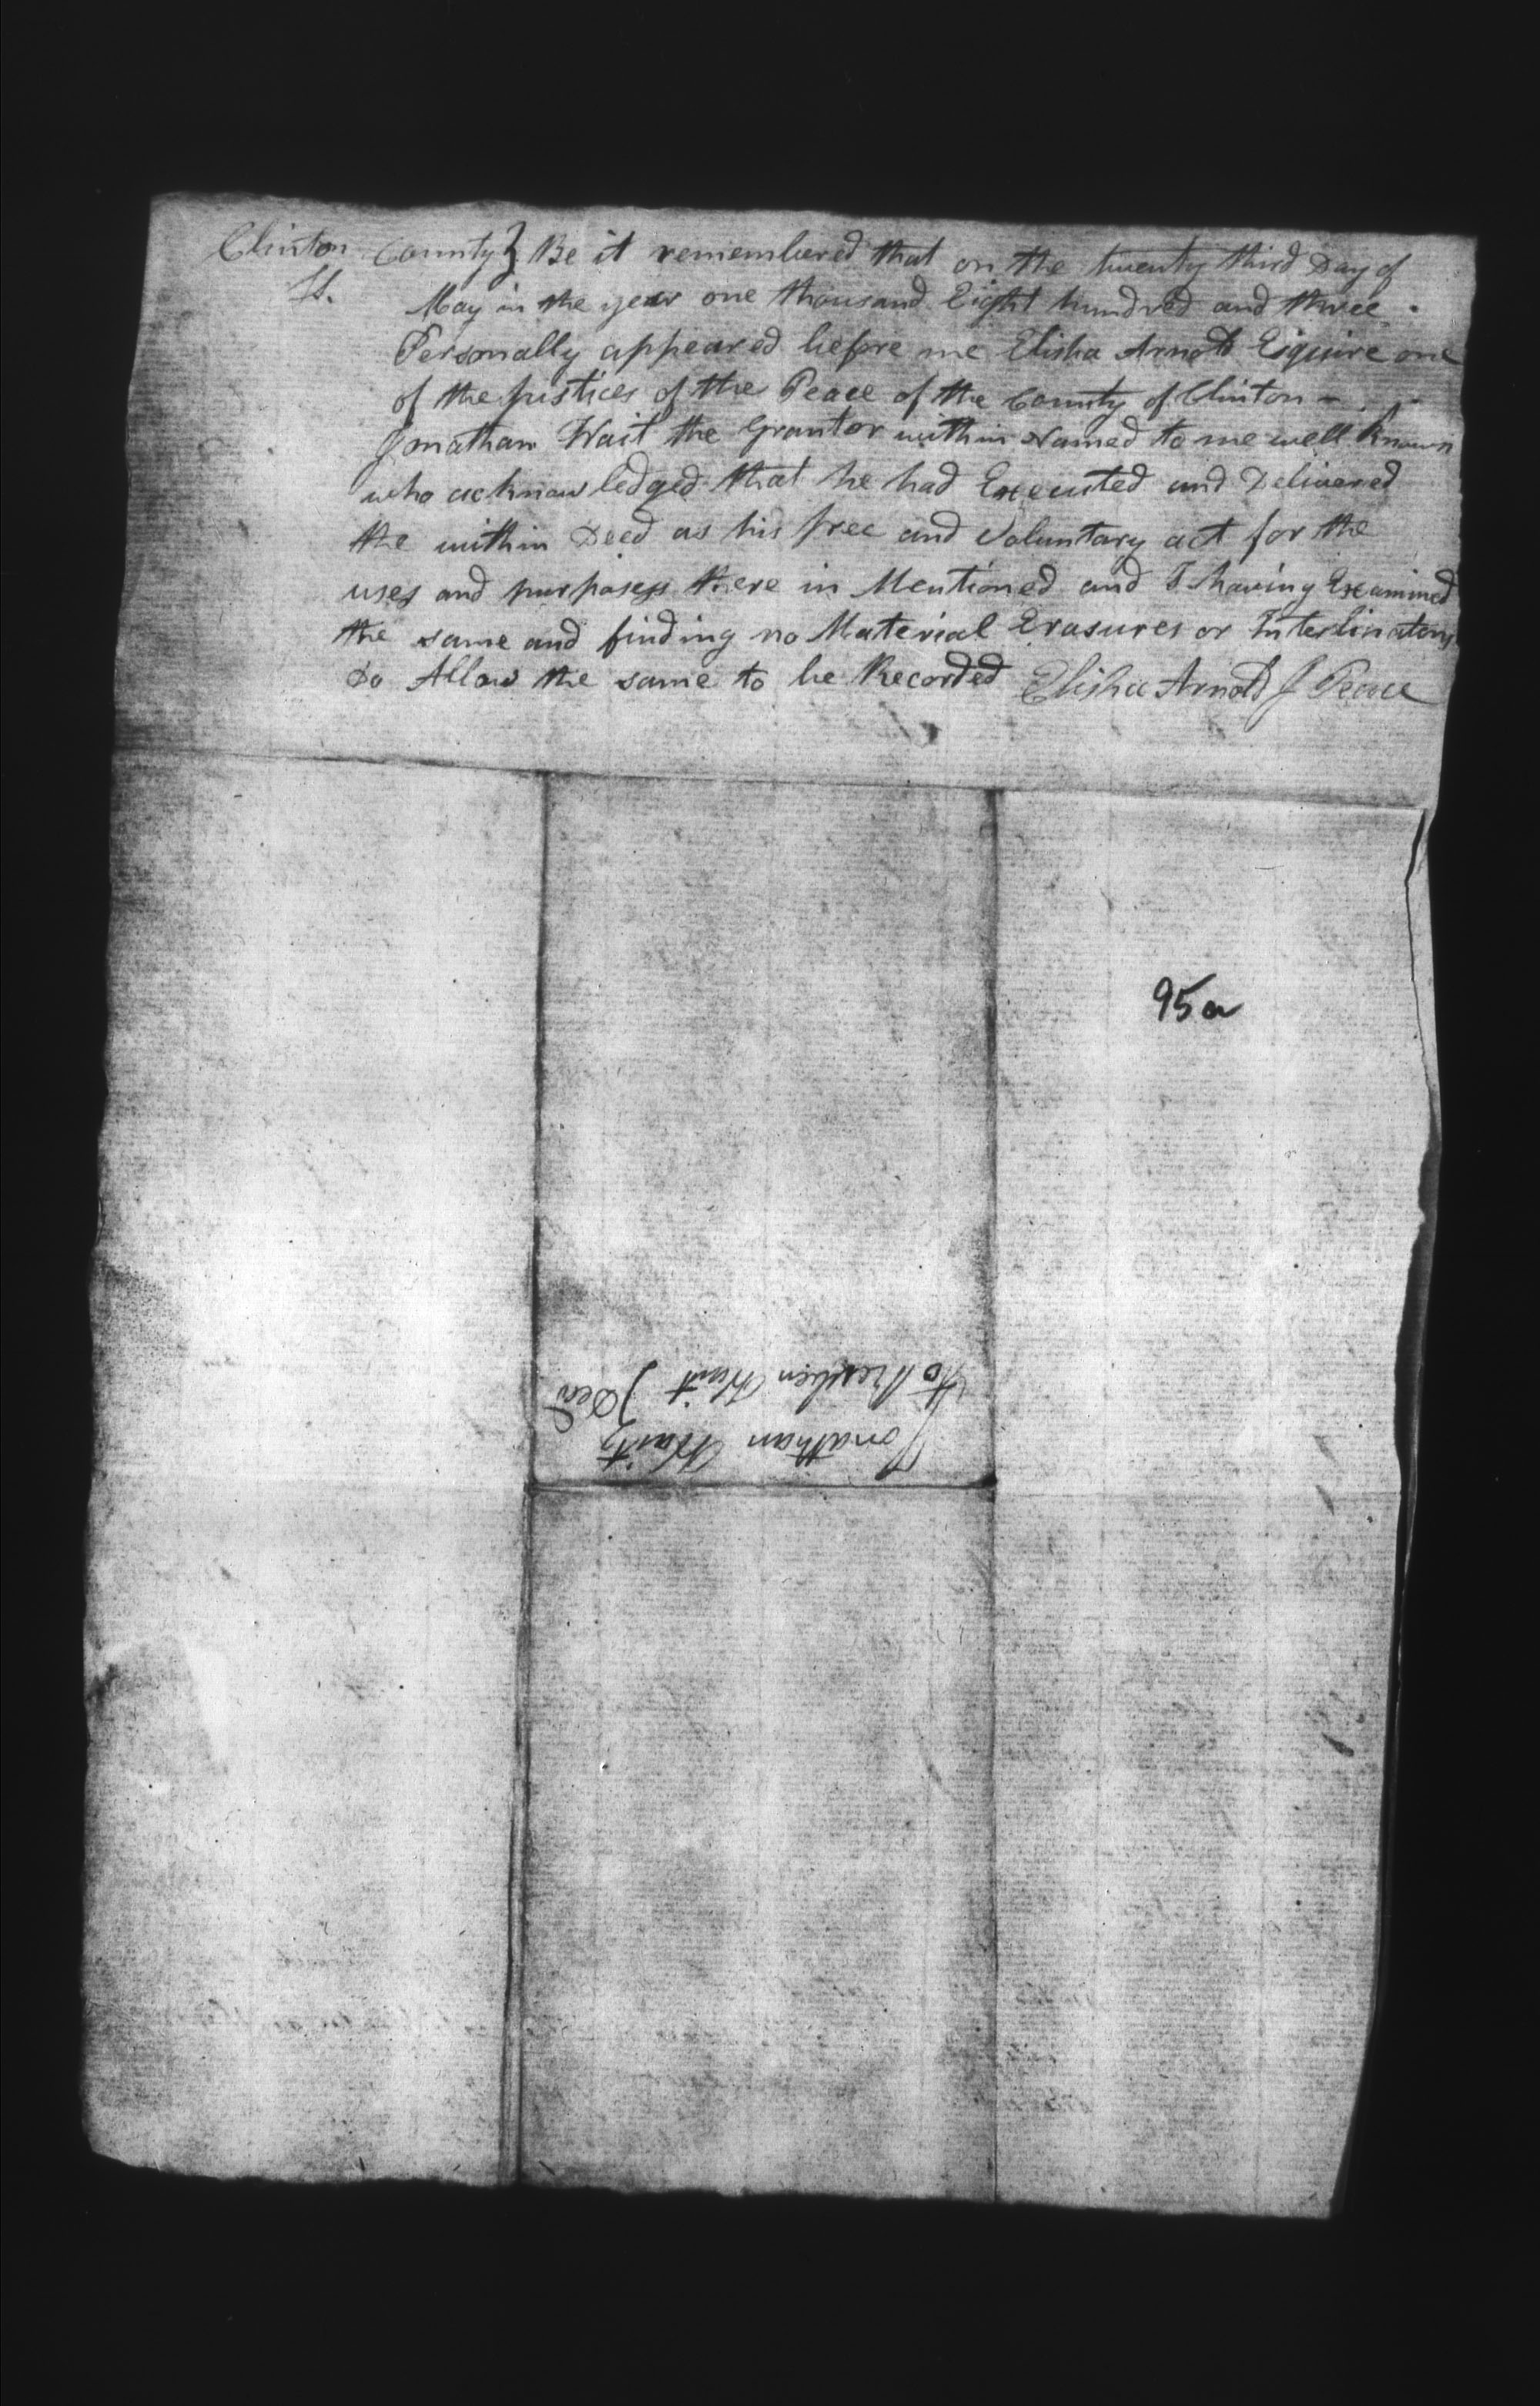 Clinton County } Be it remembered that on the twenty third Day of
SS. May in the year one thousand Eight hundred and three
Personally appeared before me Elisha Arnold Esquire one
of the justices of the Peace of the County of Clinton -
Jonathan Wait the Grantor within Named to me well known
who acknowledged that he had Executed and Delivered
the within Deed as his free and Voluntary act for the
uses and purposess there in Mentioned and I having Examined
the same and finding no Material Erasures or
Do Allow the same to be Recorded Elisha Arnold J Peace
95a
Jonathan Wait }
to Wait } Deed